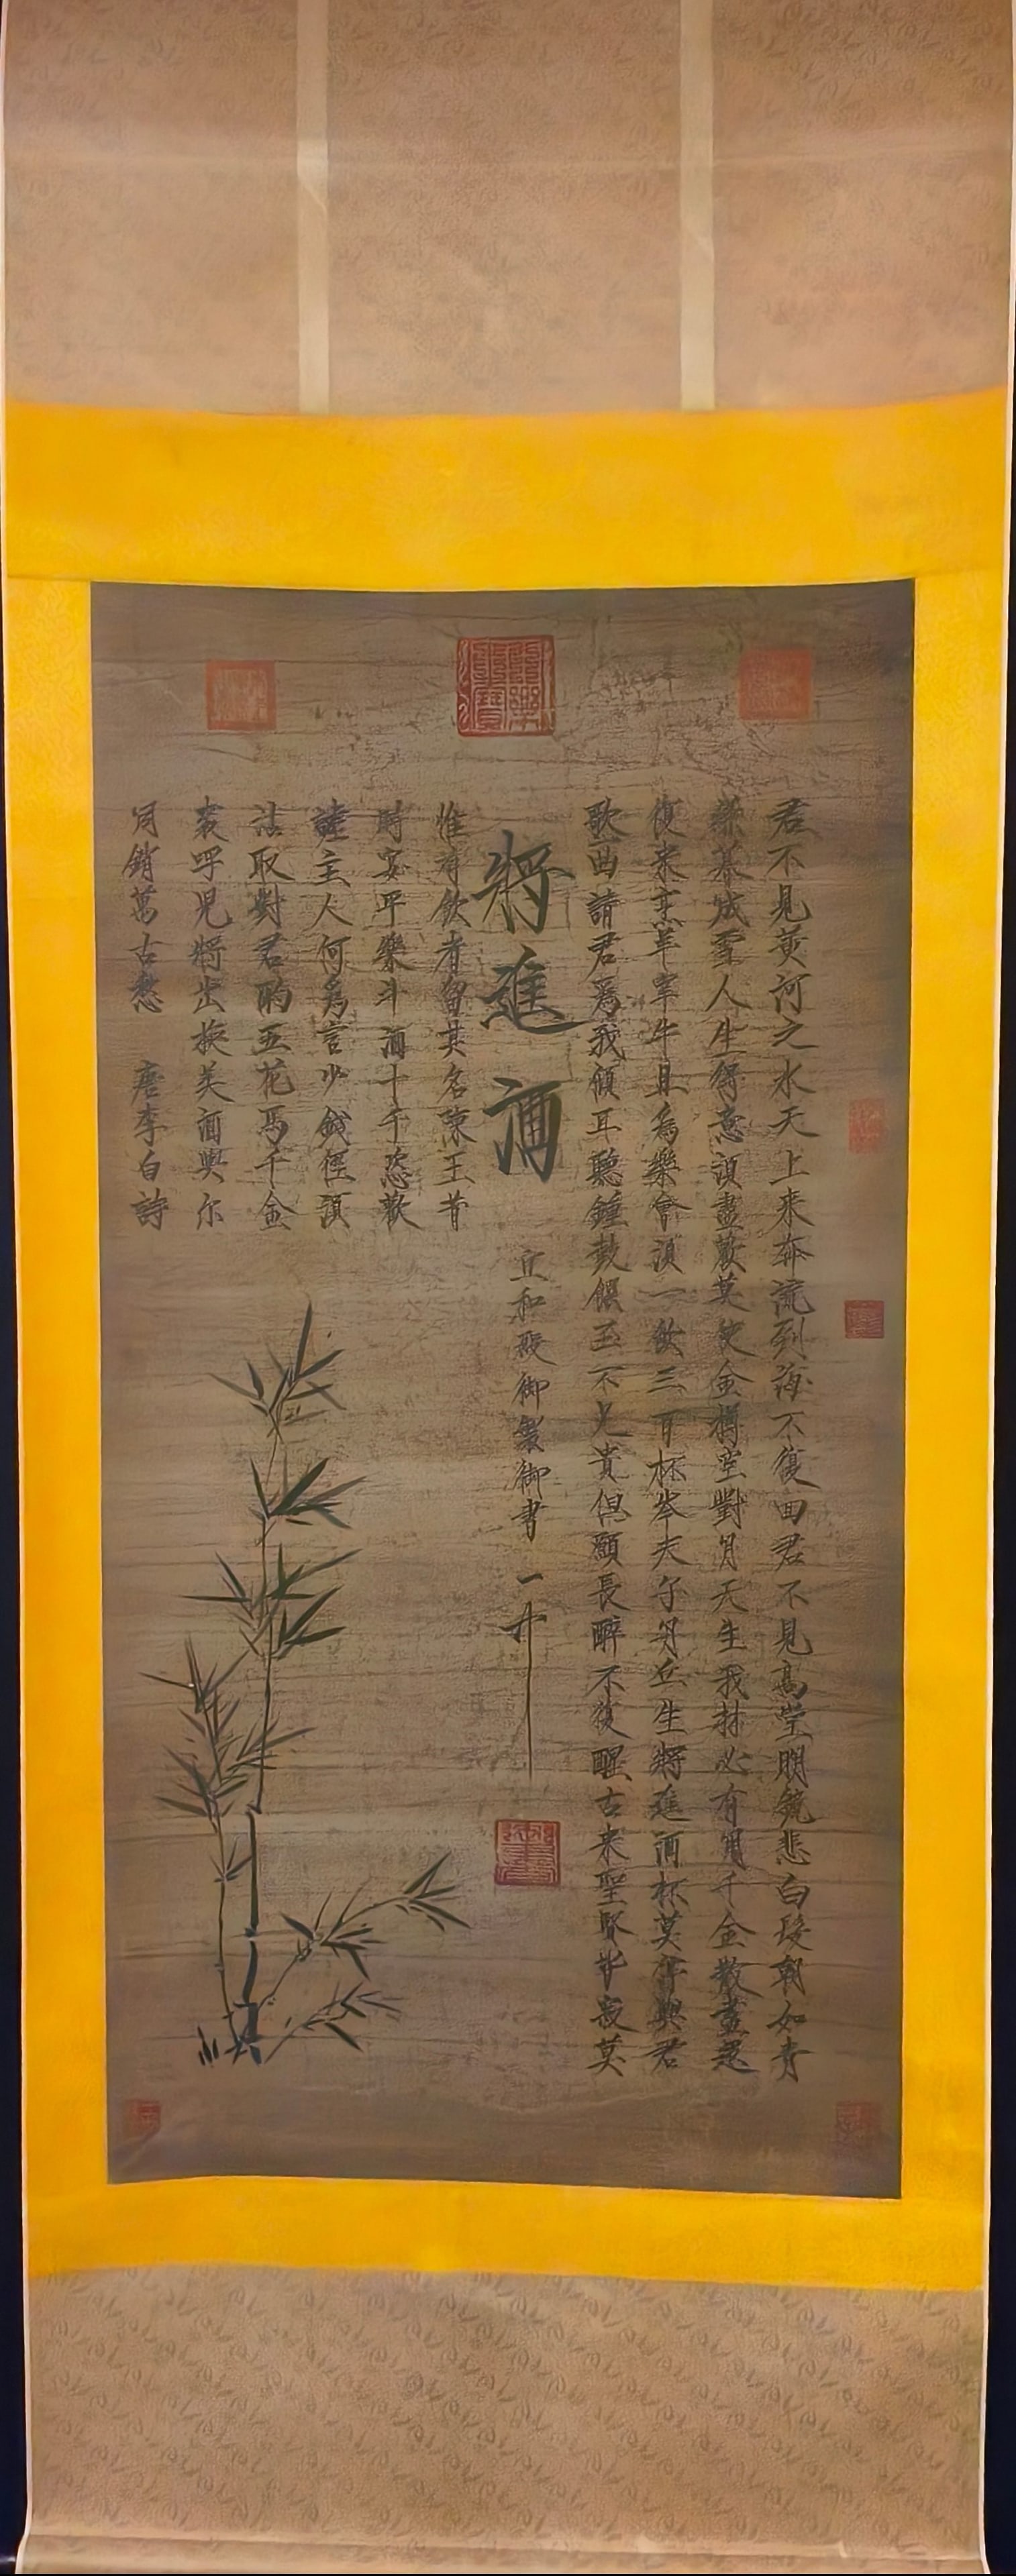 君不見黃河之水天上来奔流到海不復回君不見高堂明鏡悲白髮朝如青
絲暮成雪人生得意須盡歡莫使金樽空對月天生我材必有用千金散盡還
復来烹羊宰牛且為樂會須一飲三百杯岑夫子丹丘生將進酒杯莫停與君
歌一曲請君爲我傾耳聽鍾鼓饌玉不足貴但願長醉不復醒古来聖賢皆寂莫
將進酒
宣和殿御製御書
惟有飲者留其名陳王昔
時宴平樂斗酒十千恣歡
謔主人何爲言少錢徑須
沽取對君酌五花馬千金
裘呼兒將出換美酒與尔
同銷萬古愁 唐李白詩